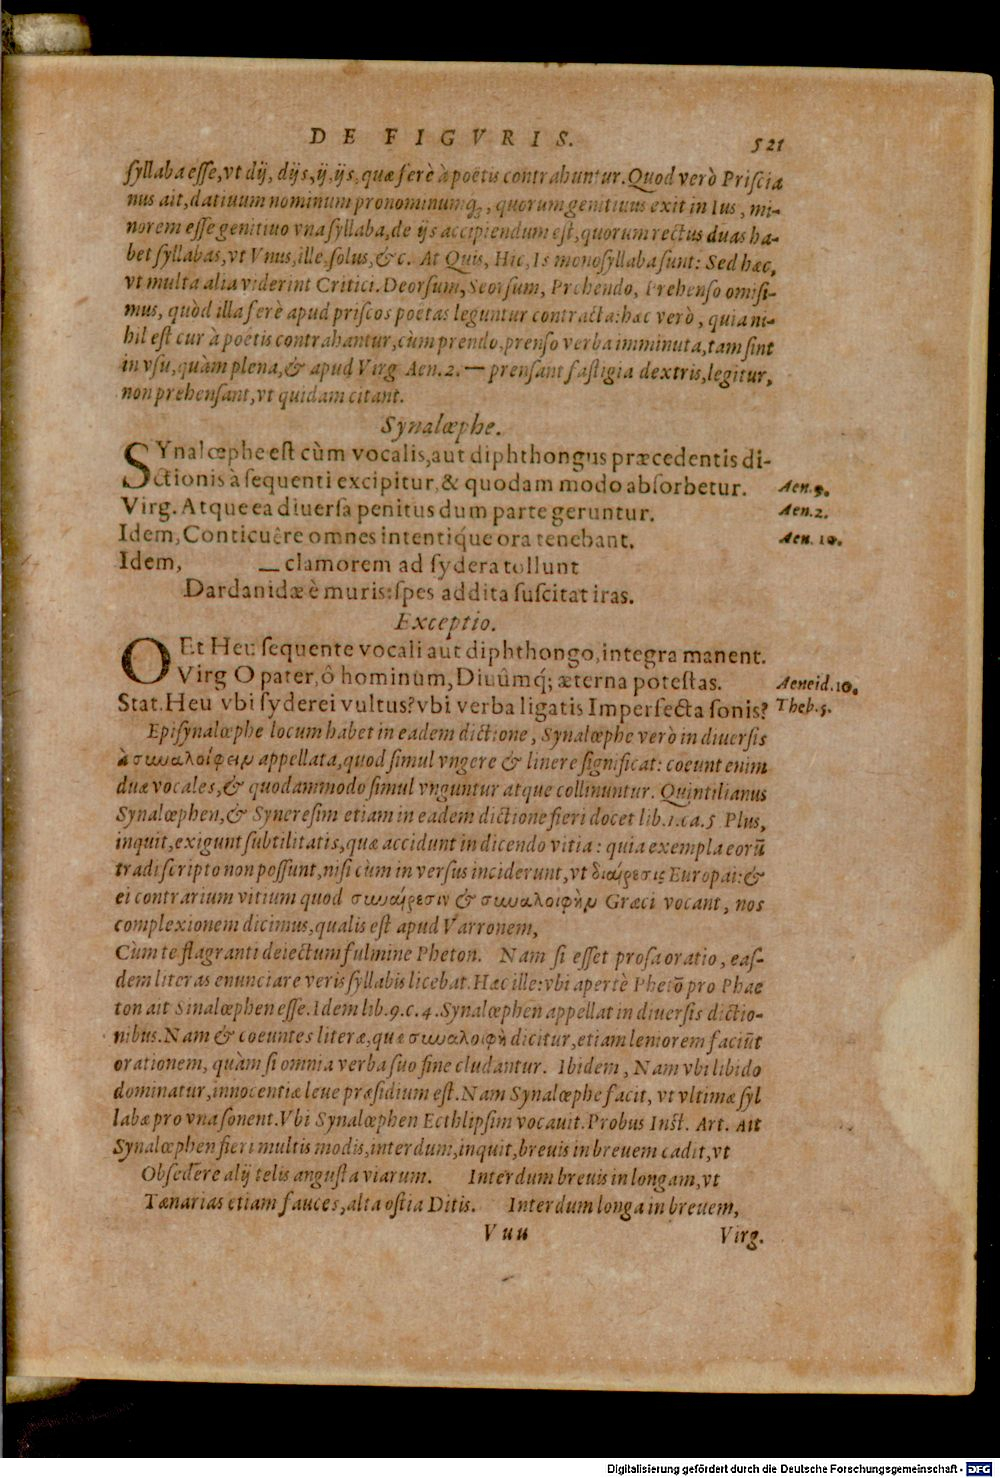 DE FIGVRIS. 521
syllaba esse, vt dij, dijs, ij, ijs, quæ ferè à poëtis contrahuntur. Quod verò Priscia
nus ait, datiuum nominum pronominumq́;, quorum genitiuus exit in Ius, mi-
norem esse genitiuo vna syllaba, de ijs accipiendum est, quorum rectus duas ha-
bet syllabas, vt Vnus, ille, solus, &c. At Quis, Hic, Is monosyllaba sunt: Sed hæc,
vt multa alia viderint Critici. Deorsum, Seorsum, Prehendo, Prehenso omisi-
mus, quòd illa ferè apud priscos poëtas leguntur contracta: hæc verò, quia ni-
hil est cur à poëtis contrahantur, cùm prendo, prenso verba imminuta, tam sint
in vsu, quàm plena, & apud Virg Aen. 2. — prensant fastigia dextris, legitur,
non prehensant, vt quidam citant.
Synalœphe.
SYnalœphe est cùm vocalis, aut diphthongus præcedentis di-
ctionis à sequenti excipitur, & quodam modo absorbetur. Aen. 9.
Virg. Atque ea diuersa penitus dum parte geruntur. Aen. 2.
Idem, Conticuêre omnes intentíque ora tenebant. Aen. 10.
Idem, — clamorem ad sydera tollunt
Dardanidæ è muris: spes addita suscitat iras.
Exceptio.
O Et Heu sequente vocali aut diphthongo, integra manent.
Virg O pater, ô hominum, Diuûmq́; æterna potestas. Aeneid. 10.
Stat. Heu vbi syderei vultus? vbi verba ligatis Imperfecta sonis? Theb. 5.
Episynalœphe locum habet in eadem dictione, Synalœphe verò in diuersis
à συναλοίφειν appellata, quod simul vngere & linere significat: coeunt enim
duæ vocales, & quodammodo simul vnguntur atque collinuntur. Quintilianus
Synalœphen, & Syneresim etiam in eadem dictione fieri docet lib. 1. ca. 5 Plus,
inquit, exigunt subtilitatis, quæ accidunt in dicendo vitia: quia exempla eorũ
tradi scripto non possunt, nisi cùm in versus inciderunt, vt διαίρεσις Europai: &
ei contrarium vitium quod συναίρεσιν & συναλοιφὴν Græci vocant, nos
complexionem dicimus, qualis est apud Varronem,
Cùm te flagranti deiectum fulmine Pheton. Nam si esset prosa oratio, eas-
dem literas enunciare veris syllabis licebat. Hæc ille: vbi apertè Phetõ pro Phae
ton ait Sinalœphen esse. Idem lib. 9. c. 4. Synalœphen appellat in diuersis dictio-
nibus. Nam & coeuntes literæ, quæ συναλοιφὴ dicitur, etiam leniorem faciũt
orationem, quàm si omnia verba suo fine cludantur. Ibidem, Nam vbi libido
dominatur, innocentiæ leue præsidium est. Nam Synalœphe facit, vt vltimæ syl
labæ pro vna sonent. Vbi Synalœphen Ecthlipsim vocauit. Probus Inst. Art. Ait
Synalœphen fieri multis modis, interdum, inquit, breuis in breuem cadit, vt
Obsedere alij telis angusta viarum. Interdum breuis in longam, vt
Tænarias etiam fauces, alta ostia Ditis. Interdum longa in breuem,
Vuu Virg.
Digitalisierung gefördert durch die Deutsche Forschungsgemeinschaft - DFG